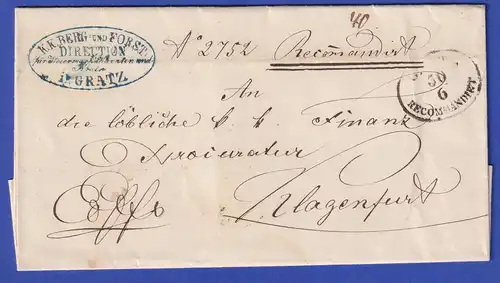 K.K. BERG- UND FORST-
DIRECTION
für Steiermark, Kärnten und
Krain
in GRATZ
40
No 2752 Recomandirt
30
6
RECOMMANDIRT
An
die löbliche k k Finanz
Procuratur
Klagenfurt